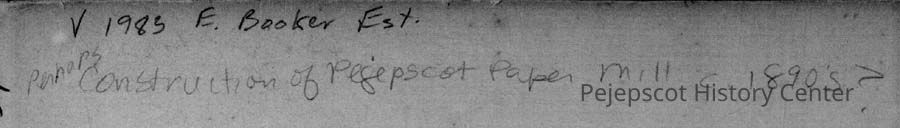 V 1983 E. Booker Est.
Perhaps Construction of Pejepscot Paper Mill c 1890's ?
Pejepscot History Center